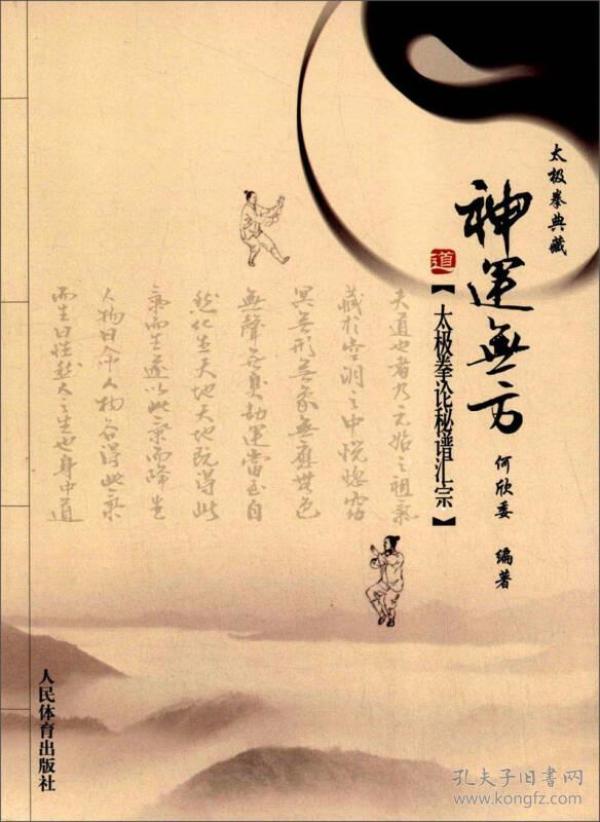 太极拳典藏
神運無方
道
【太极拳论秘谱汇宗】
何欣委 编著
夫道也者乃元始之祖氣
藏於空洞之中恍惚窈
冥無形無象無應無色
無聲無臭劫運當至自
然化生天地天地既得此
氣而生遂以此氣而降生
人物曰命人物各得此氣
而生曰性然人之生也身中道
人民体育出版社
孔夫子旧书网
www.kongfz.com